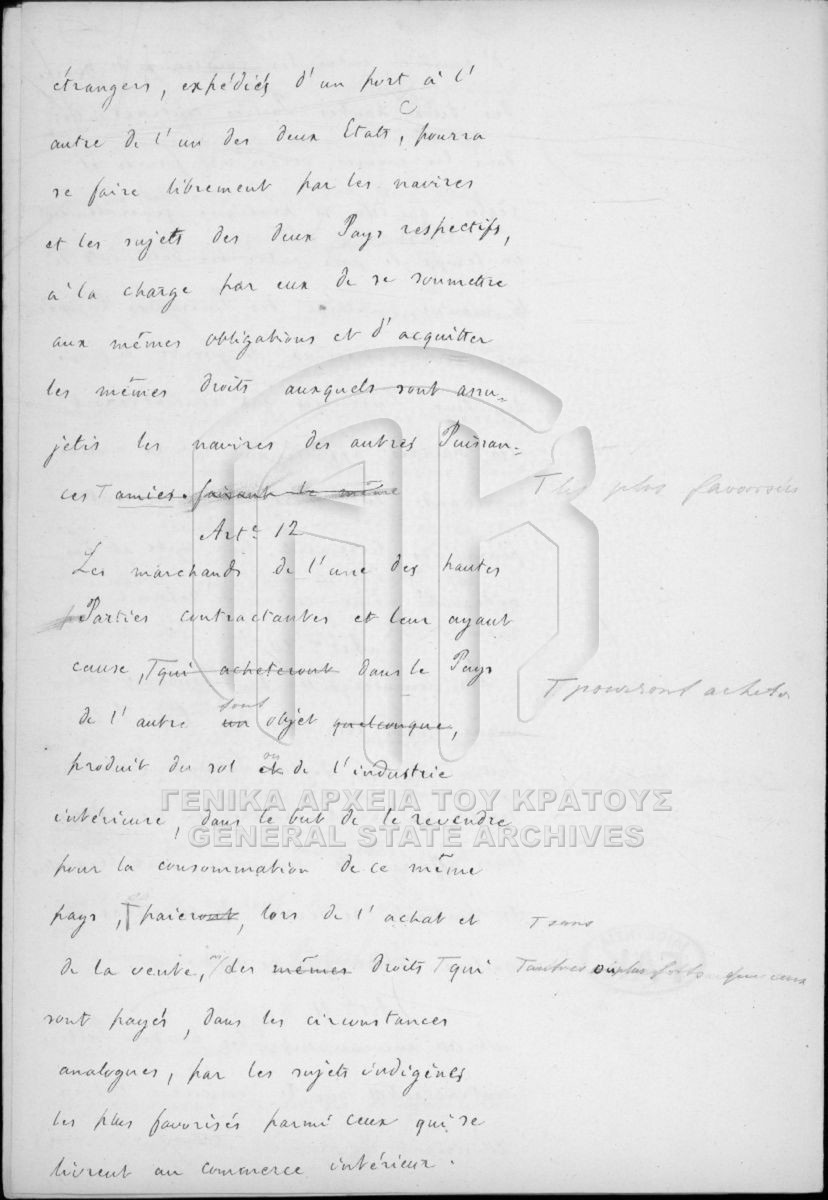 étrangers, expédiés d'un port à l'
autre de l'un des deux Etats, pourra
se faire librement par les navires
et les sujets des deux Pays respectifs,
à la charge par eux de se soumettre
aux mêmes obligations et d'acquitter
les mêmes droits auxquels sont assu-
jetis les navires des autres Puissan-
ces T amies. faisant de même
T les plus favorisées
Arte. 12
Les marchands de l'une des hautes
Parties contractantes et leur ayant
cause, T qui acheteront dans le Pays
T pourront acheter
de l'autre un tout objet quelconque,
produit du sol et ou de l'industrie
ΓΕΝΙΚΑ ΑΡΧΕΙΑ ΤΟΥ ΚΡΑΤΟΥΣ
intérieure, dans le but de le revendre
GENERAL STATE ARCHIVES
pour la consommation de ce même
pays, T paieront, lors de l'achat et
T sans
de la vente, des mêmes droits T qui
T autres ou plus forts que ceux
sont payés, dans les circonstances
analogues, par les sujets indigènes
les plus favorisés parmi ceux qui se
livrent au commerce intérieur.